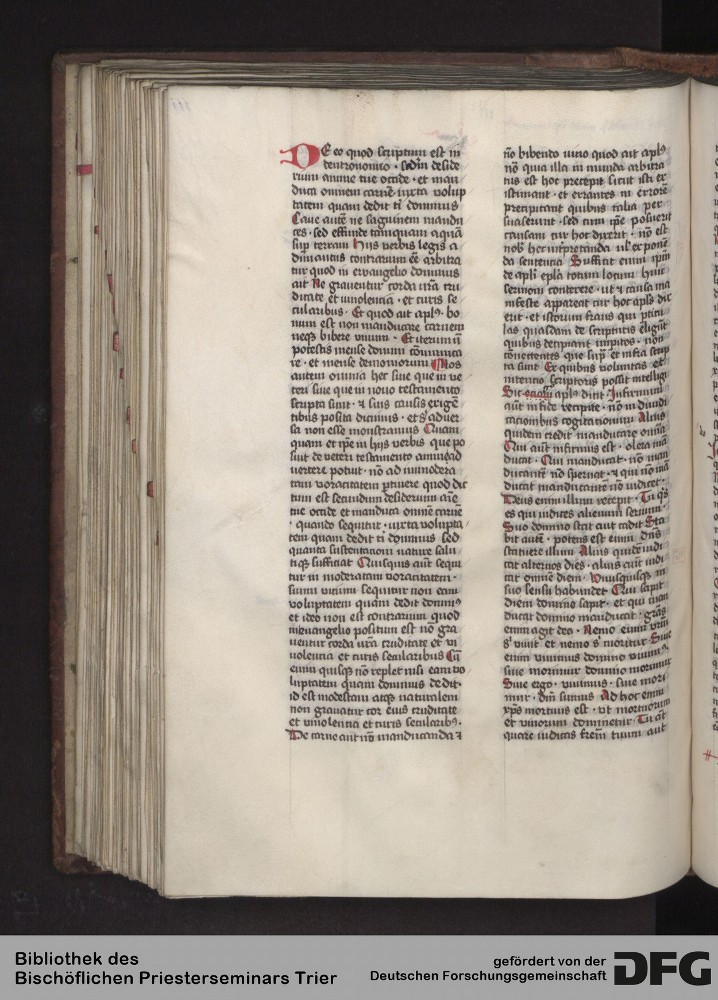 DE eo quod scriptum est in
deutronomio · scdm deside
rium anime tue occide · et man
duca omnem carnē iuxta volup
tatem quam dedit ti dominus
Caue autē ne sagwinem mandu
ces · sed effunde tāmquam aquā
sup terram Hijs verbis legis a
dimantus contrarium eē arbitra
tur quod in ewangelio dominus
ait Ne grauentur corda vrā cru
ditate et vinolencia · et curis se
cularibus · Et quod ait aplꝰ · bo
num est non manducare carnem
neqꝫ bibere vinum · Et iterum nō
potestis mense domini cōmunica
re · et mense demoniorum Nos
autem omnia hec siue que in ve
teri siue que in nouo testamento
scripta sunt · ⁊ suis causis exigē
tibus posita dicimus · et s' aduer
sa non esse monstramus Quam
quam et ipē in hijs verbis que po
suit de veteri testamento animad
uertere potuit · nō ad inmodera
tam voracitatem ptinere quod dic
tum est secundum desiderium aīe
tue occide et manduca omnem carnē
· quando sequitur · iuxta volupta
tem quam dedit ti dominus sed
quanta sustentacioni nature salu
tiqꝫ sufficiat Quisquis aūt sequi
tur in moderatam voracitatem ·
suum vicium sequitur non eam
voluptatem quam dedit dominꝰ
et ideo non est contrarium quod
in ewangelio positum est nō gra
uentur corda vrā cruditate et vi
nolencia et curis secularibus Cū
enim quisqꝫ nō replet nisi eam vo
luptatem quam dominus dedit ·
id est modestam atqꝫ naturalem
non grauatur cor eius cruditate
et vinolencia et curis secularibꝰ ·
De carne aūt nō manducanda ⁊
nō bibendo vino quod ait aplꝰ
nō quia illa in munda arbitra
tus est hoc precepit sicut isti ex
istimant · et errantes in errorē
precipitant quibus talia per
suaserunt · sed cum ipē posuerit
causam cur hoc dixerit · nō est
nob hec interpretanda vl' exponē
da sentencia Sufficit enim ipm
de apli epla totum locum huic
sermoni conterere · ut ⁊ causa ma
nifeste appareat cur hoc aplꝰ dix
erit · et istorum fraus qui pticu
las quasdam de scripturis eligūt
quibus decipiant impitos · non
connectentes que sup et infra scrip
ta sunt Ex quibus voluntas et
intencio scriptoris possit intelligi
Sic apls dixit Infirmum
aūt in fide recipite · nō in diiudi
cacionibus cogitacionum Alius
quidem credit manducare omīa
Qui aūt infirmus est · olera mā
ducat · Qui manducat · nō man
ducantē nō spernat · ⁊ qui nō mā
ducat manducantē nō iudicet ·
Deus enim illum recepit · Tu qs
es qui iudices alienum seruum ·
Suo domino stat aut cadit Sta
bit autē · potens est enim dns
statuere illum Alius quidē iudi
cat alternos dies · alius aūt iudi
cat omnē diem · Vnusquisqꝫ in
suo sensu habundet Qui sapit
diem domino sapit · et qui man
ducat domino manducat · gras
enim agit deo · Nemo enim vrm
s' viuit et nemo s' moritur Siue
enim viuimus domino viuimꝰ ·
siue morimur domino morimur
Siue ergo · viuimus · siue mori
mur · dni sumus Ad hoc enim
xps mortuus est · vt mortuorum
et viuorum dominetur · Tu aūt
quare iudicas frem tuum aut
Bibliothek des
Bischöflichen Priesterseminars Trier
gefördert von der
Deutschen Forschungsgemeinschaft
DFG